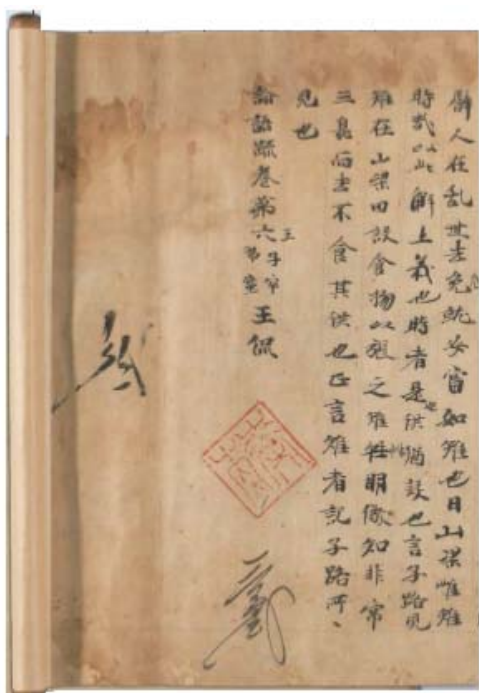 人在乱世去危就安當如雉也曰山梁雌雉
時哉以此解上義也時者是供猶設也言子路見
雉在山梁因設食物以張之雉性明儆知非常
三臭而去不食其供也正言雌者記子路所〻
見也
論語疏卷第六 子罕 郷黨 王侃